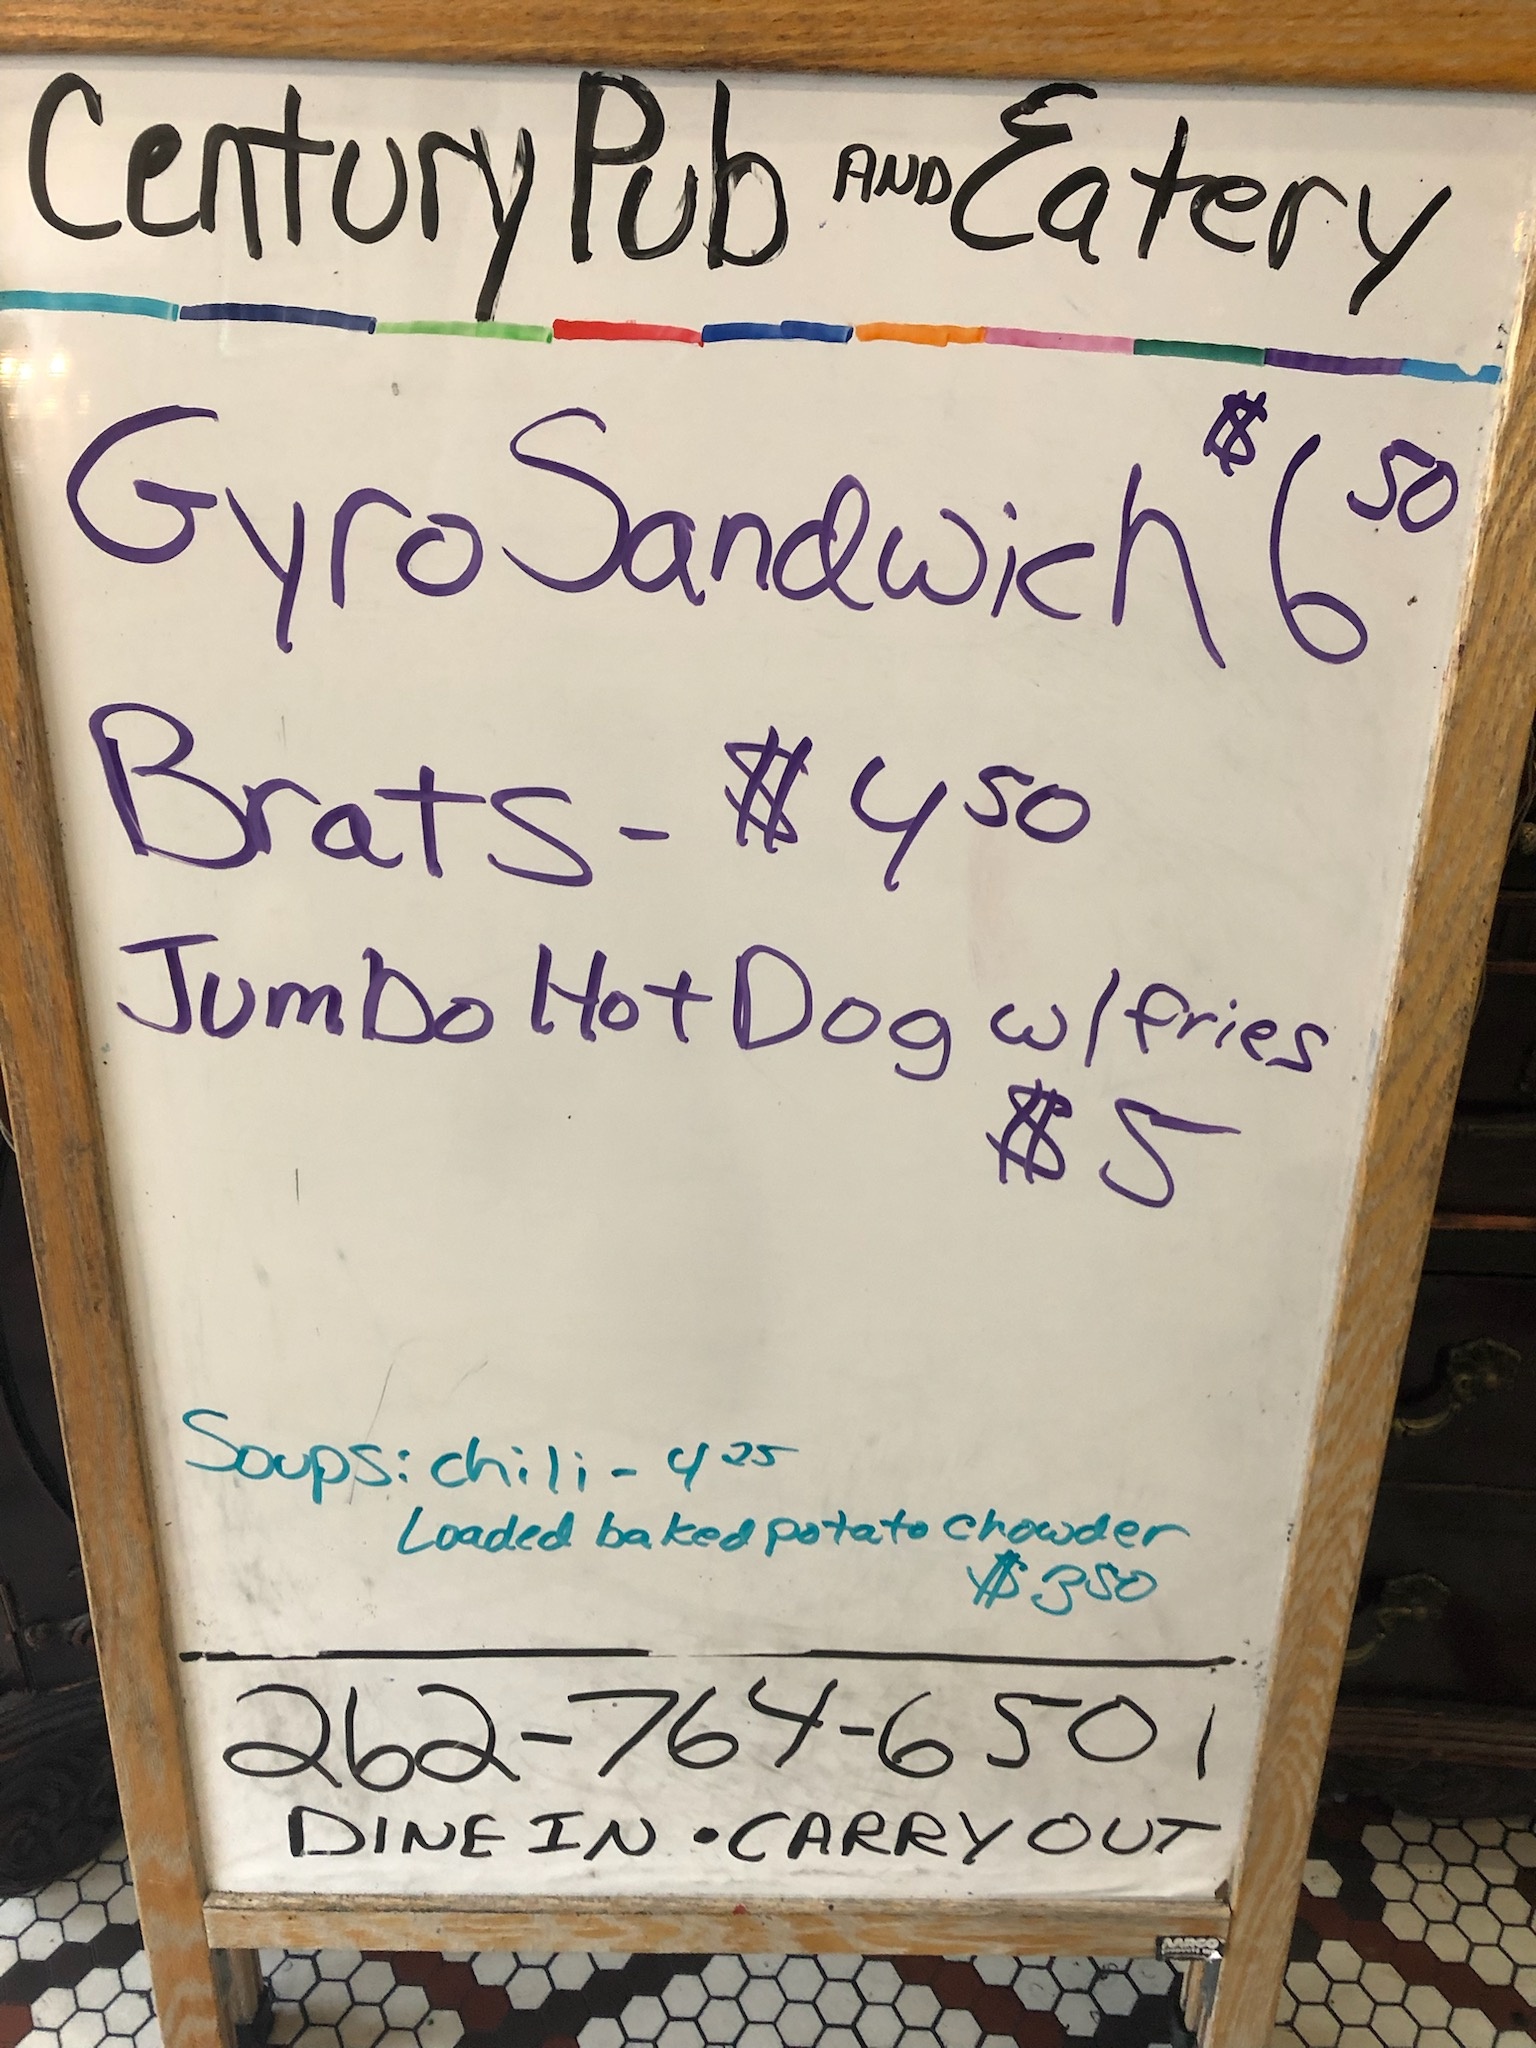 Century Pub AND Eatery
Gyro Sandwich $6 50
Brats - $4 50
Jumbo Hot Dog w/ fries
$5
Soups: chili - 4 25
Loaded baked potato chowder
$3 50
262-764-6501
DINE IN • CARRY OUT
AARCO